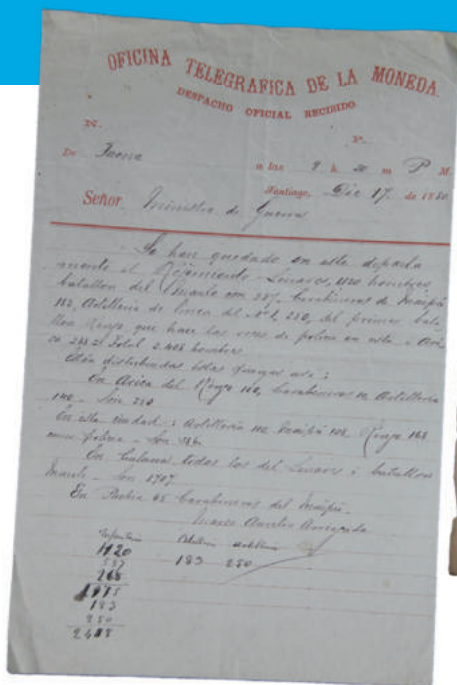 OFICINA TELEGRAFICA DE LA MONEDA
DESPACHO OFICIAL RECIBIDO
N.
De Tacna
a las 8 h. 30 m P M.
Santiago, Dic 17. de 1880
Señor Ministro de Guerra
Se han quedado en este departa
mento el Rejimiento Linares, 1120 hombres,
batallon del Maule con 587, Carabineros de Maipú
183, Artilleria de linea del Nº 1, 250, del primer bata
llon Rengo que hace las veces de policia en esta i Ari
ca 268 = Total 2.408 hombres.
Están distribuidas estas fuerzas asi:
En Arica del Rengo 100, Carabineros Artilleria
140 - Son 240
En esta ciudad: Artilleria 110 Maipú 108 Rengo 168
como policia - Son
En todas las del Linares i batallon
Maule - Son 1707
En Pachia 65 Carabineros del Maipú.
1120
587
268
1975
183
250
2408
183 250